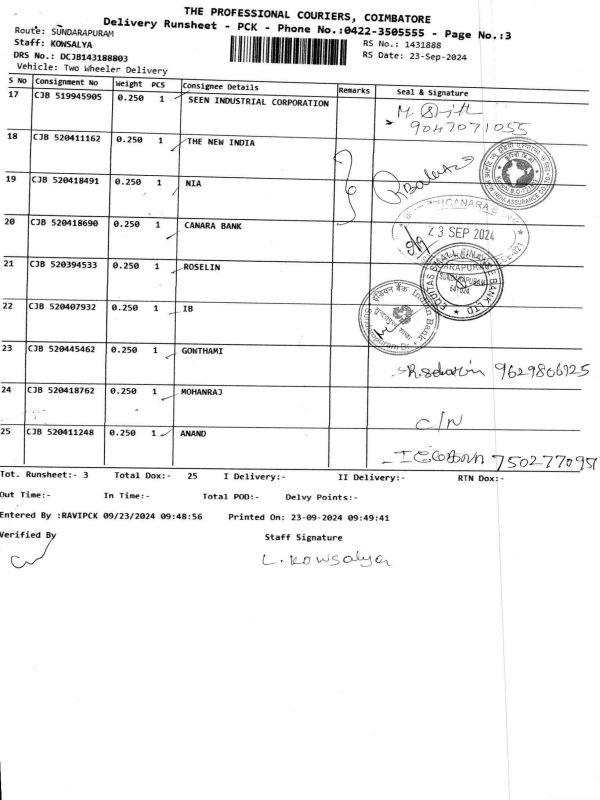 THE PROFESSIONAL COURIERS, COIMBATORE
Delivery Runsheet - PCK - Phone No.:0422-3505555 - Page No.:3
Route: SUNDARAPURAM
Staff: KOWSALYA
RS No.: 1431888
DRS No.: DCJB143188803
RS Date: 23-Sep-2024
Vehicle: Two Wheeler Delivery
S No Consignment No Weight PCS Consignee Details Remarks Seal & Signature
17 CJB 519945905 0.250 1 SEEN INDUSTRIAL CORPORATION
9047071055
18 CJB 520411162 0.250 1 THE NEW INDIA
19 CJB 520418491 0.250 1 NIA
20 CJB 520418690 0.250 1 CANARA BANK
CANARA BANK
23 SEP 2024
21 CJB 520394533 0.250 1 ROSELIN
EQUITAS SMALL FINANCE BANK LTD
22 CJB 520407932 0.250 1 IB
इंडियन बैंक Indian Bank
23 CJB 520445462 0.250 1 GONTHAMI
9629806925
24 CJB 520418762 0.250 1 MOHANRAJ
C/N
25 CJB 520411248 0.250 1 ANAND
7502770957
Tot. Runsheet:- 3 Total Dox:- 25 I Delivery:- II Delivery:- RTN Dox:-
Out Time:- In Time:- Total POD:- Delvy Points:-
Entered By :RAVIPCK 09/23/2024 09:48:56 Printed On: 23-09-2024 09:49:41
Verified By Staff Signature
L. Kowsalya